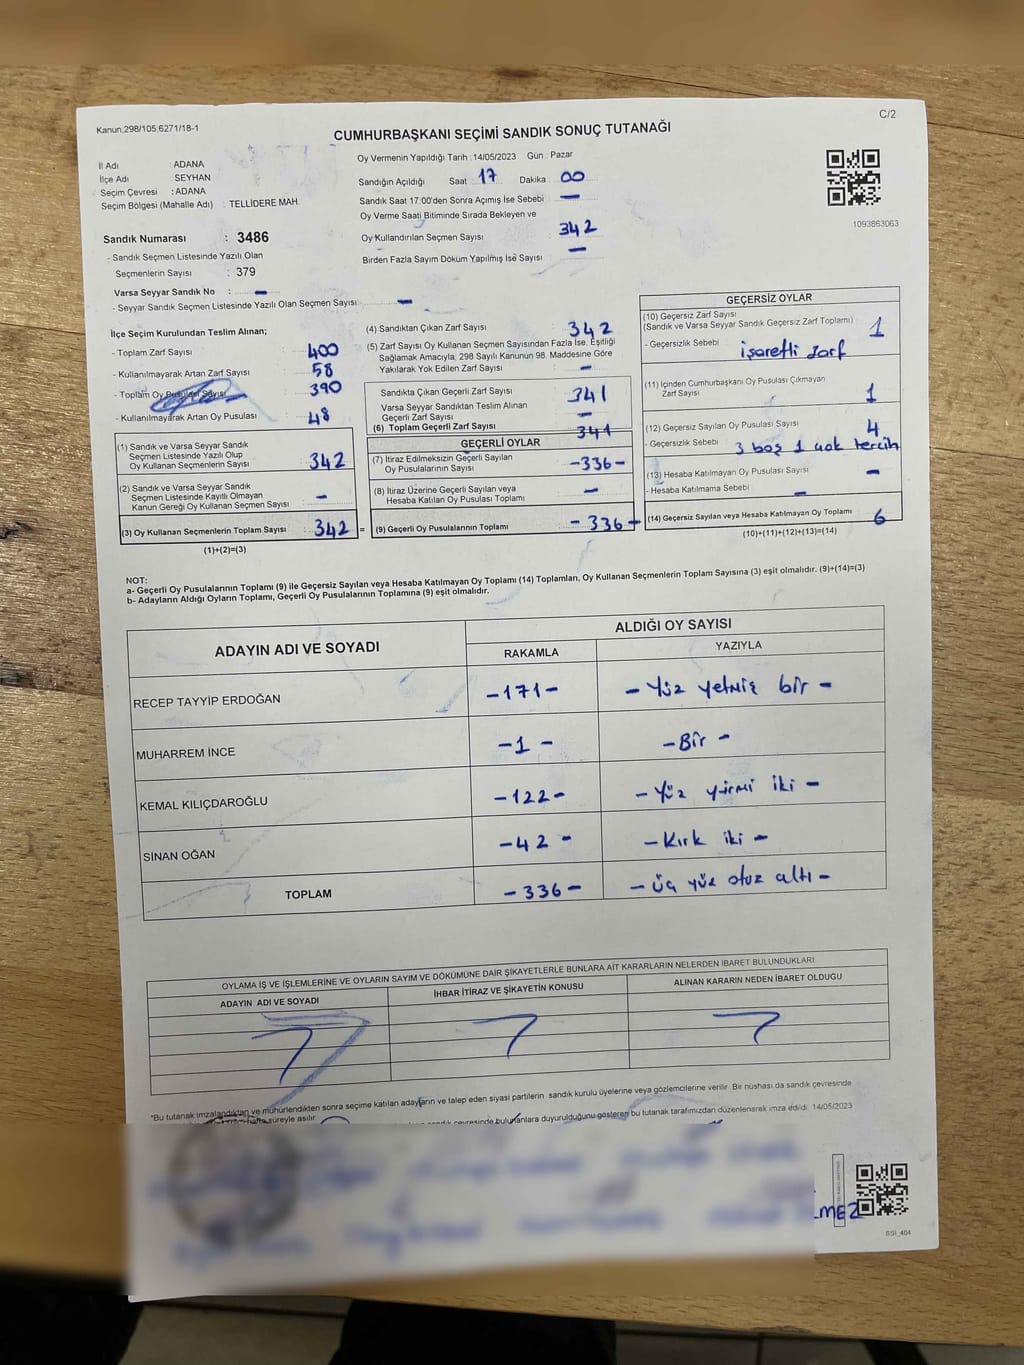 Kanun,298/105,6271/18-1
C/2
CUMHURBAŞKANI SEÇİMİ SANDIK SONUÇ TUTANAĞI
İl Adı : ADANA
İlçe Adı : SEYHAN
Seçim Çevresi : ADANA
Seçim Bölgesi (Mahalle Adı) : TELLİDERE MAH.
Sandık Numarası : 3486
- Sandık Seçmen Listesinde Yazılı Olan
Seçmenlerin Sayısı : 379
Varsa Seyyar Sandık No : -
- Seyyar Sandık Seçmen Listesinde Yazılı Olan Seçmen Sayısı: -
Oy Vermenin Yapıldığı Tarih : 14/05/2023 Gün : Pazar
Sandığın Açıldığı Saat : 17 Dakika : 00
Sandık Saat 17:00'den Sonra Açımış İse Sebebi : -
Oy Verme Saati Bitiminde Sırada Bekleyen ve
Oy Kullandırılan Seçmen Sayısı : 342
Birden Fazla Sayım Döküm Yapılmış İse Sayısı : -
1093863063
İlçe Seçim Kurulundan Teslim Alınan;
- Toplam Zarf Sayısı : 400
- Kullanılmayarak Artan Zarf Sayısı : 58
- Toplam Oy Pusulası Sayısı : 390
- Kullanılmayarak Artan Oy Pusulası : 48
(1) Sandık ve Varsa Seyyar Sandık
Seçmen Listesinde Yazılı Olup
Oy Kullanan Seçmenlerin Sayısı : 342
(2) Sandık ve Varsa Seyyar Sandık
Seçmen Listesinde Kayıtlı Olmayan
Kanun Gereği Oy Kullanan Seçmen Sayısı : -
(3) Oy Kullanan Seçmenlerin Toplam Sayısı : 342 =
(1)+(2)=(3)
(4) Sandıktan Çıkan Zarf Sayısı : 342
(5) Zarf Sayısı Oy Kullanan Seçmen Sayısından Fazla İse, Eşitliği
Sağlamak Amacıyla; 298 Sayılı Kanunun 98. Maddesine Göre
Yakılarak Yok Edilen Zarf Sayısı : -
Sandıkta Çıkan Geçerli Zarf Sayısı : 341
Varsa Seyyar Sandıktan Teslim Alınan
Geçerli Zarf Sayısı : -
(6) Toplam Geçerli Zarf Sayısı : 341
GEÇERLİ OYLAR
(7) İtiraz Edilmeksizin Geçerli Sayılan
Oy Pusulalarının Sayısı : -336-
(8) İtiraz Üzerine Geçerli Sayılan veya
Hesaba Katılan Oy Pusulası Toplamı : -
(9) Geçerli Oy Pusulalarının Toplamı : -336-
GEÇERSİZ OYLAR
(10) Geçersiz Zarf Sayısı
(Sandık ve Varsa Seyyar Sandık Geçersiz Zarf Toplamı) : 1
- Geçersizlik Sebebi : işaretli zarf
(11) İçinden Cumhurbaşkanı Oy Pusulası Çıkmayan
Zarf Sayısı : 1
(12) Geçersiz Sayılan Oy Pusulası Sayısı : 4
- Geçersizlik Sebebi : 3 boş 1 çok tercih
(13) Hesaba Katılmayan Oy Pusulası Sayısı : -
- Hesaba Katılmama Sebebi : -
(14) Geçersiz Sayılan veya Hesaba Katılmayan Oy Toplamı : 6
(10)+(11)+(12)+(13)=(14)
NOT:
a- Geçerli Oy Pusulalarının Toplamı (9) ile Geçersiz Sayılan veya Hesaba Katılmayan Oy Toplamı (14) Toplamları, Oy Kullanan Seçmenlerin Toplam Sayısına (3) eşit olmalıdır. (9)+(14)=(3)
b- Adayların Aldığı Oyların Toplamı, Geçerli Oy Pusulalarının Toplamına (9) eşit olmalıdır.
ADAYIN ADI VE SOYADI ALDIĞI OY SAYISI
RAKAMLA YAZIYLA
RECEP TAYYİP ERDOĞAN -171- - Yüz yetmiş bir -
MUHARREM İNCE -1- -Bir-
KEMAL KILIÇDAROĞLU -122- - Yüz yirmi iki -
SİNAN OĞAN -42- - Kırk iki -
TOPLAM -336- - üç yüz otuz altı -
OYLAMA İŞ VE İŞLEMLERİNE VE OYLARIN SAYIM VE DÖKÜMÜNE DAİR ŞİKAYETLERLE BUNLARA AİT KARARLARIN NELERDEN İBARET BULUNDUKLARI
ADAYIN ADI VE SOYADI İHBAR İTİRAZ VE ŞİKAYETİN KONUSU ALINAN KARARIN NEDEN İBARET OLDUĞU
*Bu tutanak imzalandıktan ve mühürlendikten sonra seçime katılan adayların ve talep eden siyasi partilerin sandık kurulu üyelerine veya gözlemcilerine verilir. Bir nüshası da sandık çevresinde
hafta süreyle asılır.
sandık çevresinde bulunanlara duyurulduğunu gösteren bu tutanak tarafımızdan düzenlenerek imza edildi. 14/05/2023
SSI_464